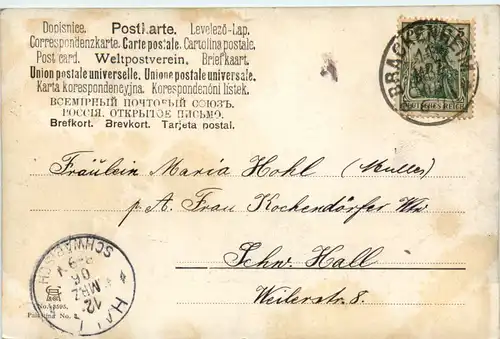 Dopisnice. Postkarte. Levelező-Lap.
Correspondenzkarte. Carte postale. Cartolina postale.
Post card. Weltpostverein. Briefkaart.
Union postale universelle. Unione postale universale.
Karta korespondencyjna. Korespondenční lístek.
ВСЕМІРНЫЙ ПОЧТОВЫЙ СОЮЗЪ.
РОССІЯ. ОТКРЫТОЕ ПИСЬМО.
Brefkort. Brevkort. Tarjeta postal.
BRACKENHEIM
DEUTSCHES REICH
Fräulein Maria Hohl (Müller)
p. A. Frau Kochendörfer Wtw
Schw. Hall
Weilerstr. 8.
HALL
SCHWÄBISCH
12 MRZ 06
8-9 N